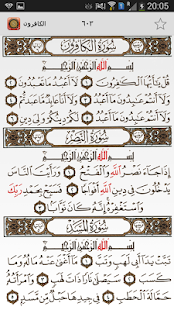 20:05
الكافرون ٦٠٣
سُورَةُ الكَافِرُونَ
بِسْمِ اللَّهِ الرَّحْمَٰنِ الرَّحِيمِ
قُلْ يَٰٓأَيُّهَا ٱلْكَٰفِرُونَ ١ لَآ أَعْبُدُ مَا تَعْبُدُونَ ٢
وَلَآ أَنتُمْ عَٰبِدُونَ مَآ أَعْبُدُ ٣ وَلَآ أَنَا۠ عَابِدٌ مَّا عَبَدتُّمْ ٤
وَلَآ أَنتُمْ عَٰبِدُونَ مَآ أَعْبُدُ ٥ لَكُمْ دِينُكُمْ وَلِىَ دِينِ ٦
سُورَةُ النَّصْرِ
بِسْمِ اللَّهِ الرَّحْمَٰنِ الرَّحِيمِ
إِذَا جَآءَ نَصْرُ ٱللَّهِ وَٱلْفَتْحُ ١ وَرَأَيْتَ ٱلنَّاسَ
يَدْخُلُونَ فِى دِينِ ٱللَّهِ أَفْوَاجًا ٢ فَسَبِّحْ بِحَمْدِ رَبِّكَ
وَٱسْتَغْفِرْهُ إِنَّهُۥ كَانَ تَوَّابًۢا ٣
سُورَةُ المَسَدِ
بِسْمِ اللَّهِ الرَّحْمَٰنِ الرَّحِيمِ
تَبَّتْ يَدَآ أَبِى لَهَبٍ وَتَبَّ ١ مَآ أَغْنَىٰ عَنْهُ مَالُهُۥ وَمَا
كَسَبَ ٢ سَيَصْلَىٰ نَارًا ذَاتَ لَهَبٍ ٣ وَٱمْرَأَتُهُۥ
حَمَّالَةَ ٱلْحَطَبِ ٤ فِى جِيدِهَا حَبْلٌ مِّن مَّسَدٍۭ ٥